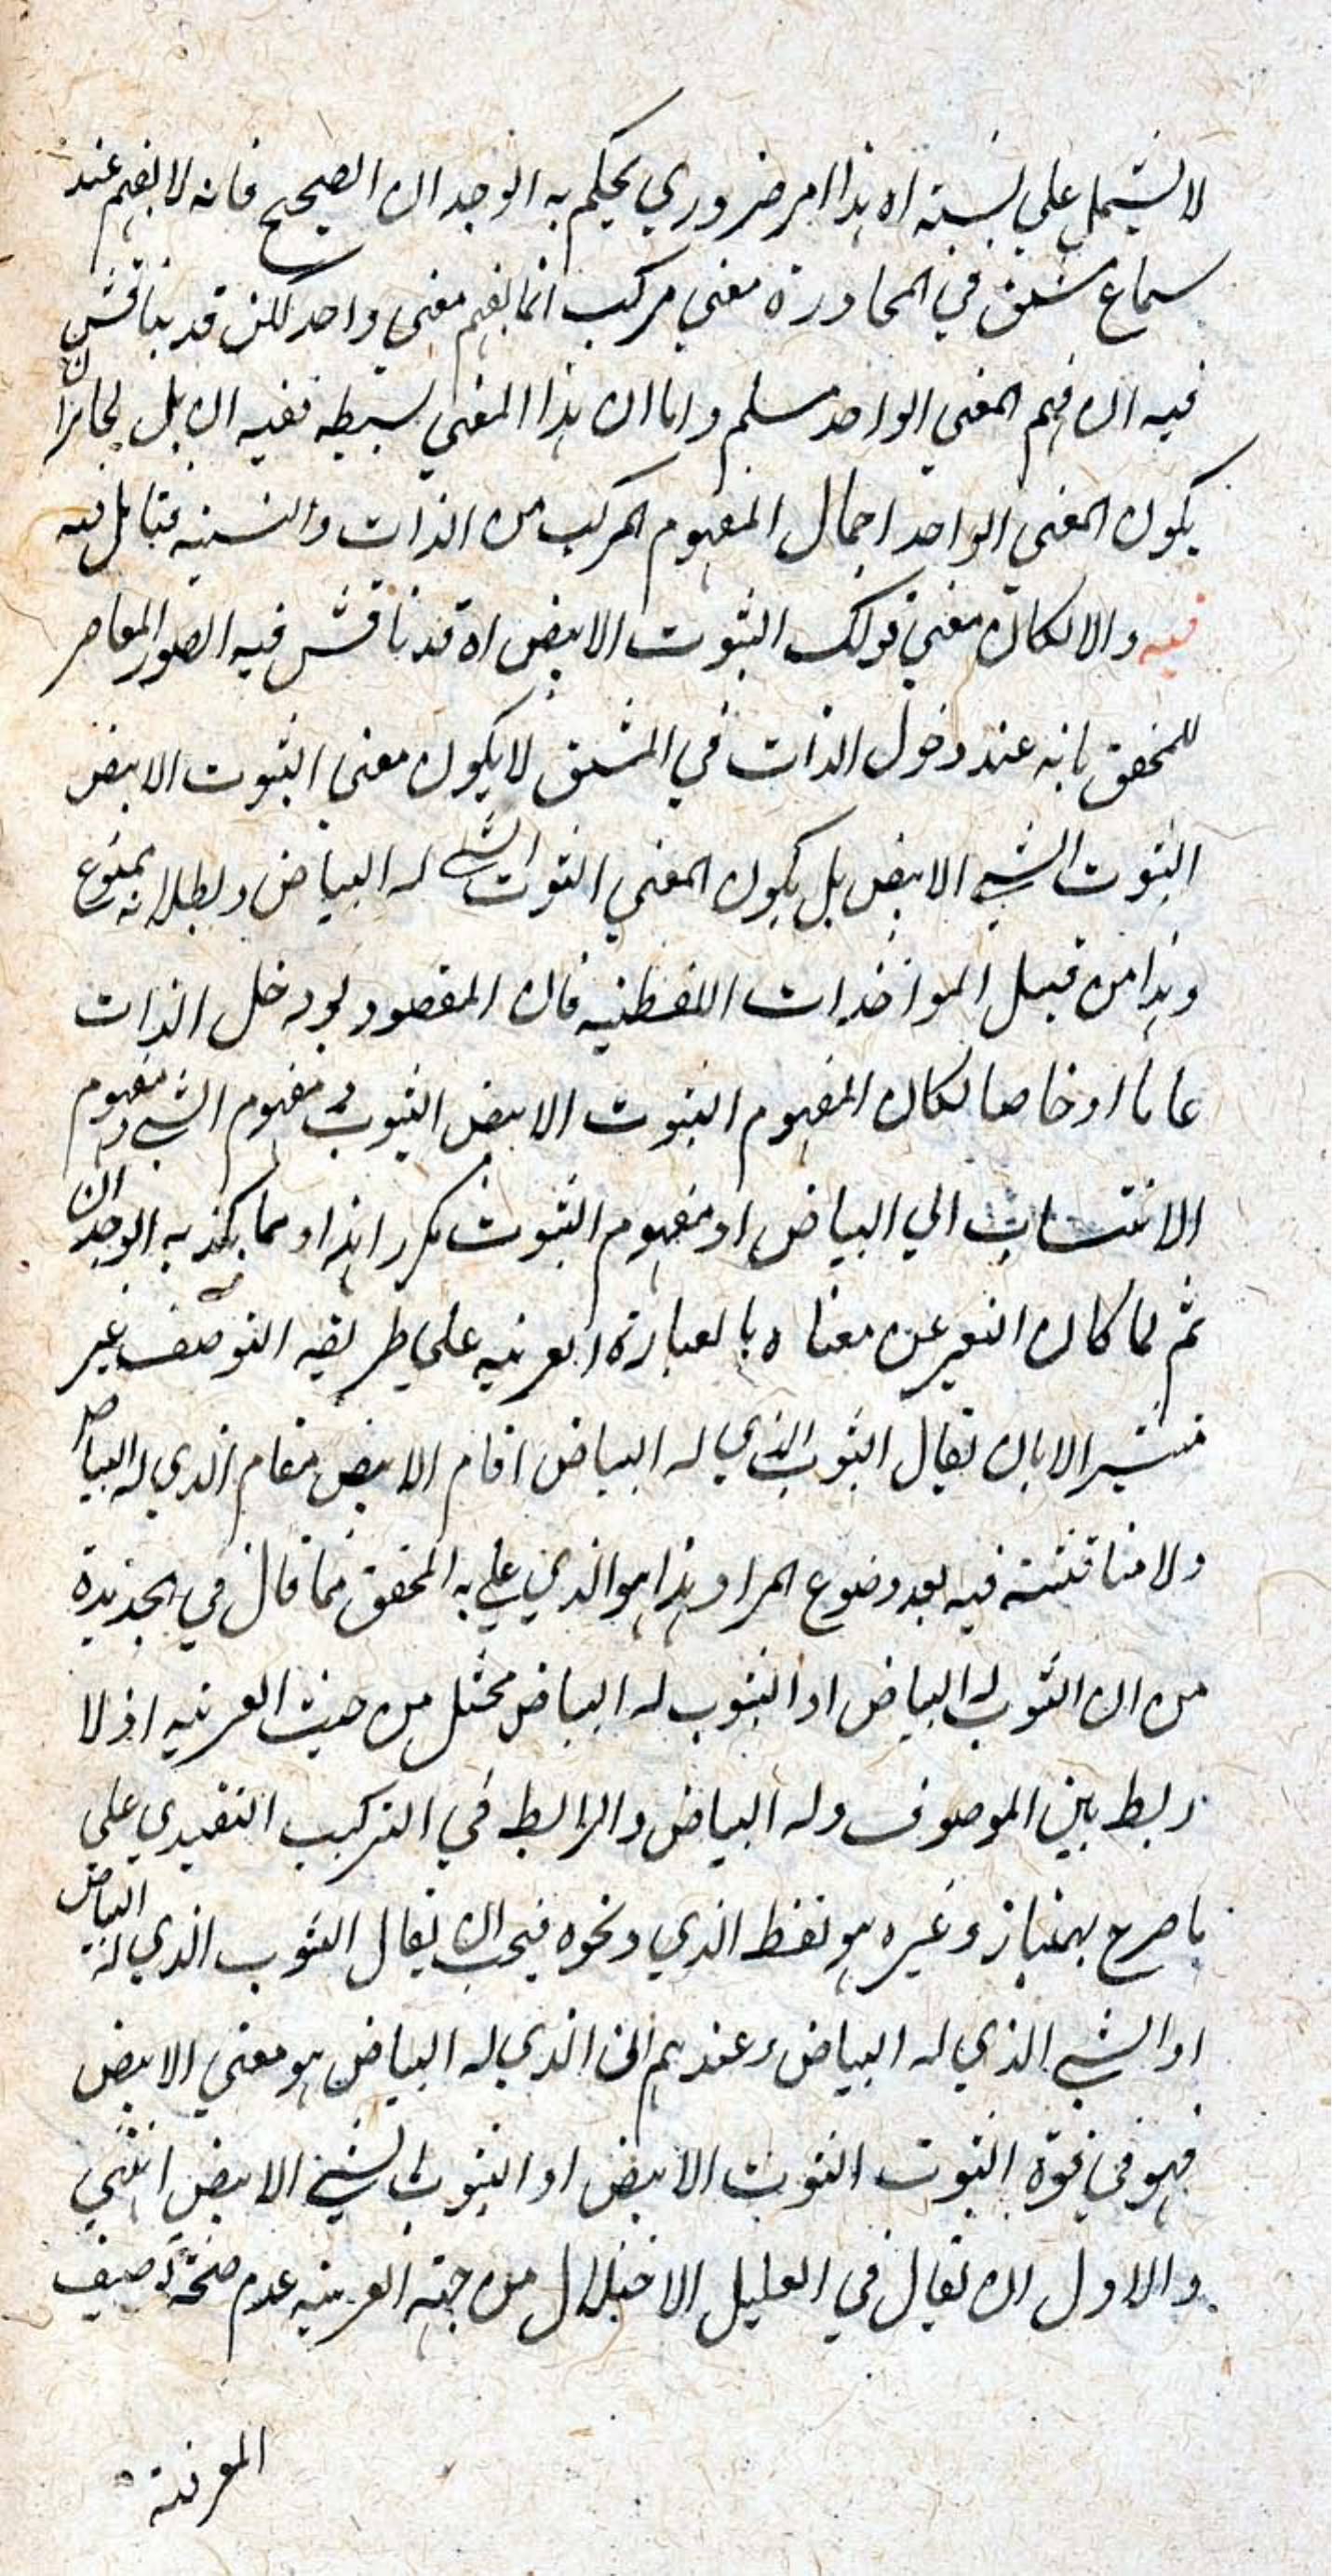 لا يشتمل علي نسبته اه هذا امر ضروري يحكم به الوجدان الصحيح فانه لا يفهم عند
سماع مشتق في المحاورة معني مركب انما يفهم معني واحد لكن قد يناقش
فيه ان فهم المعني الواحد مسلم واما ان هذا المعني بسيط ففيه ان بل يجاز ان
يكون المعني الواحد اجمال المفهوم المركب من الذات والنسبه فتامل فيه
فيه والا لكان معني قولك الثوب الابيض اه قد ناقش فيه الصدر المعاصر
للمحقق بانه عند دخول الذات في المشتق لا يكون معني الثوب الابيض
الثوب الشي الابيض بل يكون المعني الثوب الشي له البياض وبطلانه ممنوع
وهذا من قبيل المواخذات اللفظيه فان المقصود لو دخل الذات
عاما او خاصا لكان المفهوم الثوب الابيض الثوب ومفهوم الشي ومفهوم
الانتساب الي البياض او مفهوم الثوب مكررا هذا مما يكذبه الوجدان
ثم لما كان التعبير عن معناه بالعبارة العربيه علي طريقه التوصيف غير
متيسر الا بان يقال الثوب الذي له البياض اقام الابيض مقام الذي له البياض
ولا مناقشته فيه بعد وضوع المراد وهذا هو الذي علي به المحقق مما قال في الجديدة
من ان الثوب له البياض او الثوب له البياض مختل من حيث العربيه اذ لا
ربط بين الموصوف وله البياض والرابط في التركيب التقيدي علي
ما صرح بهمنيار وغيره هو لفظ الذي ونحوه فيجب ان يقال الثوب الذي له البياض
او الشي الذي له البياض وعندهم ان الذي له البياض هو معني الابيض
فهو في قوة الثوب الثوب الابيض او الثوب الشي الابيض انتهي
والاول ان يقال في العليل الاختلال من جهته العربيه عدم صحة توصيف
المعرفة